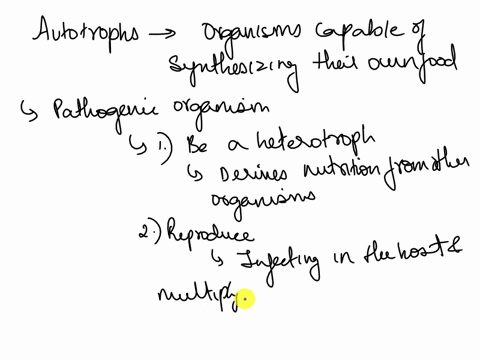 Autotrophs → Organisms capable of
Synthesizing their own food
↳ Pathogenic organism
↳ 1.) Be a heterotroph
↳ Derives nutrition from other
organisms
2.) Reproduce
↳ Infecting in the host &
multiply.